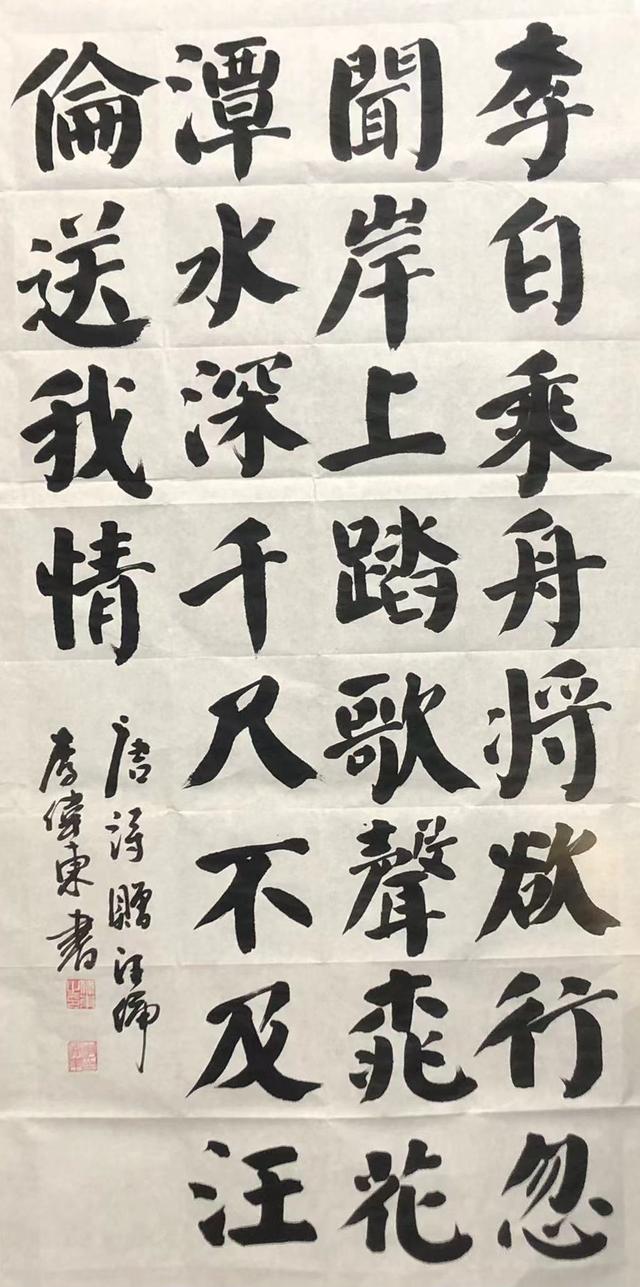 李白乘舟將欲行忽
聞岸上踏歌聲桃花
潭水深千尺不及汪
倫送我情
唐詩贈汪倫
李偉東書